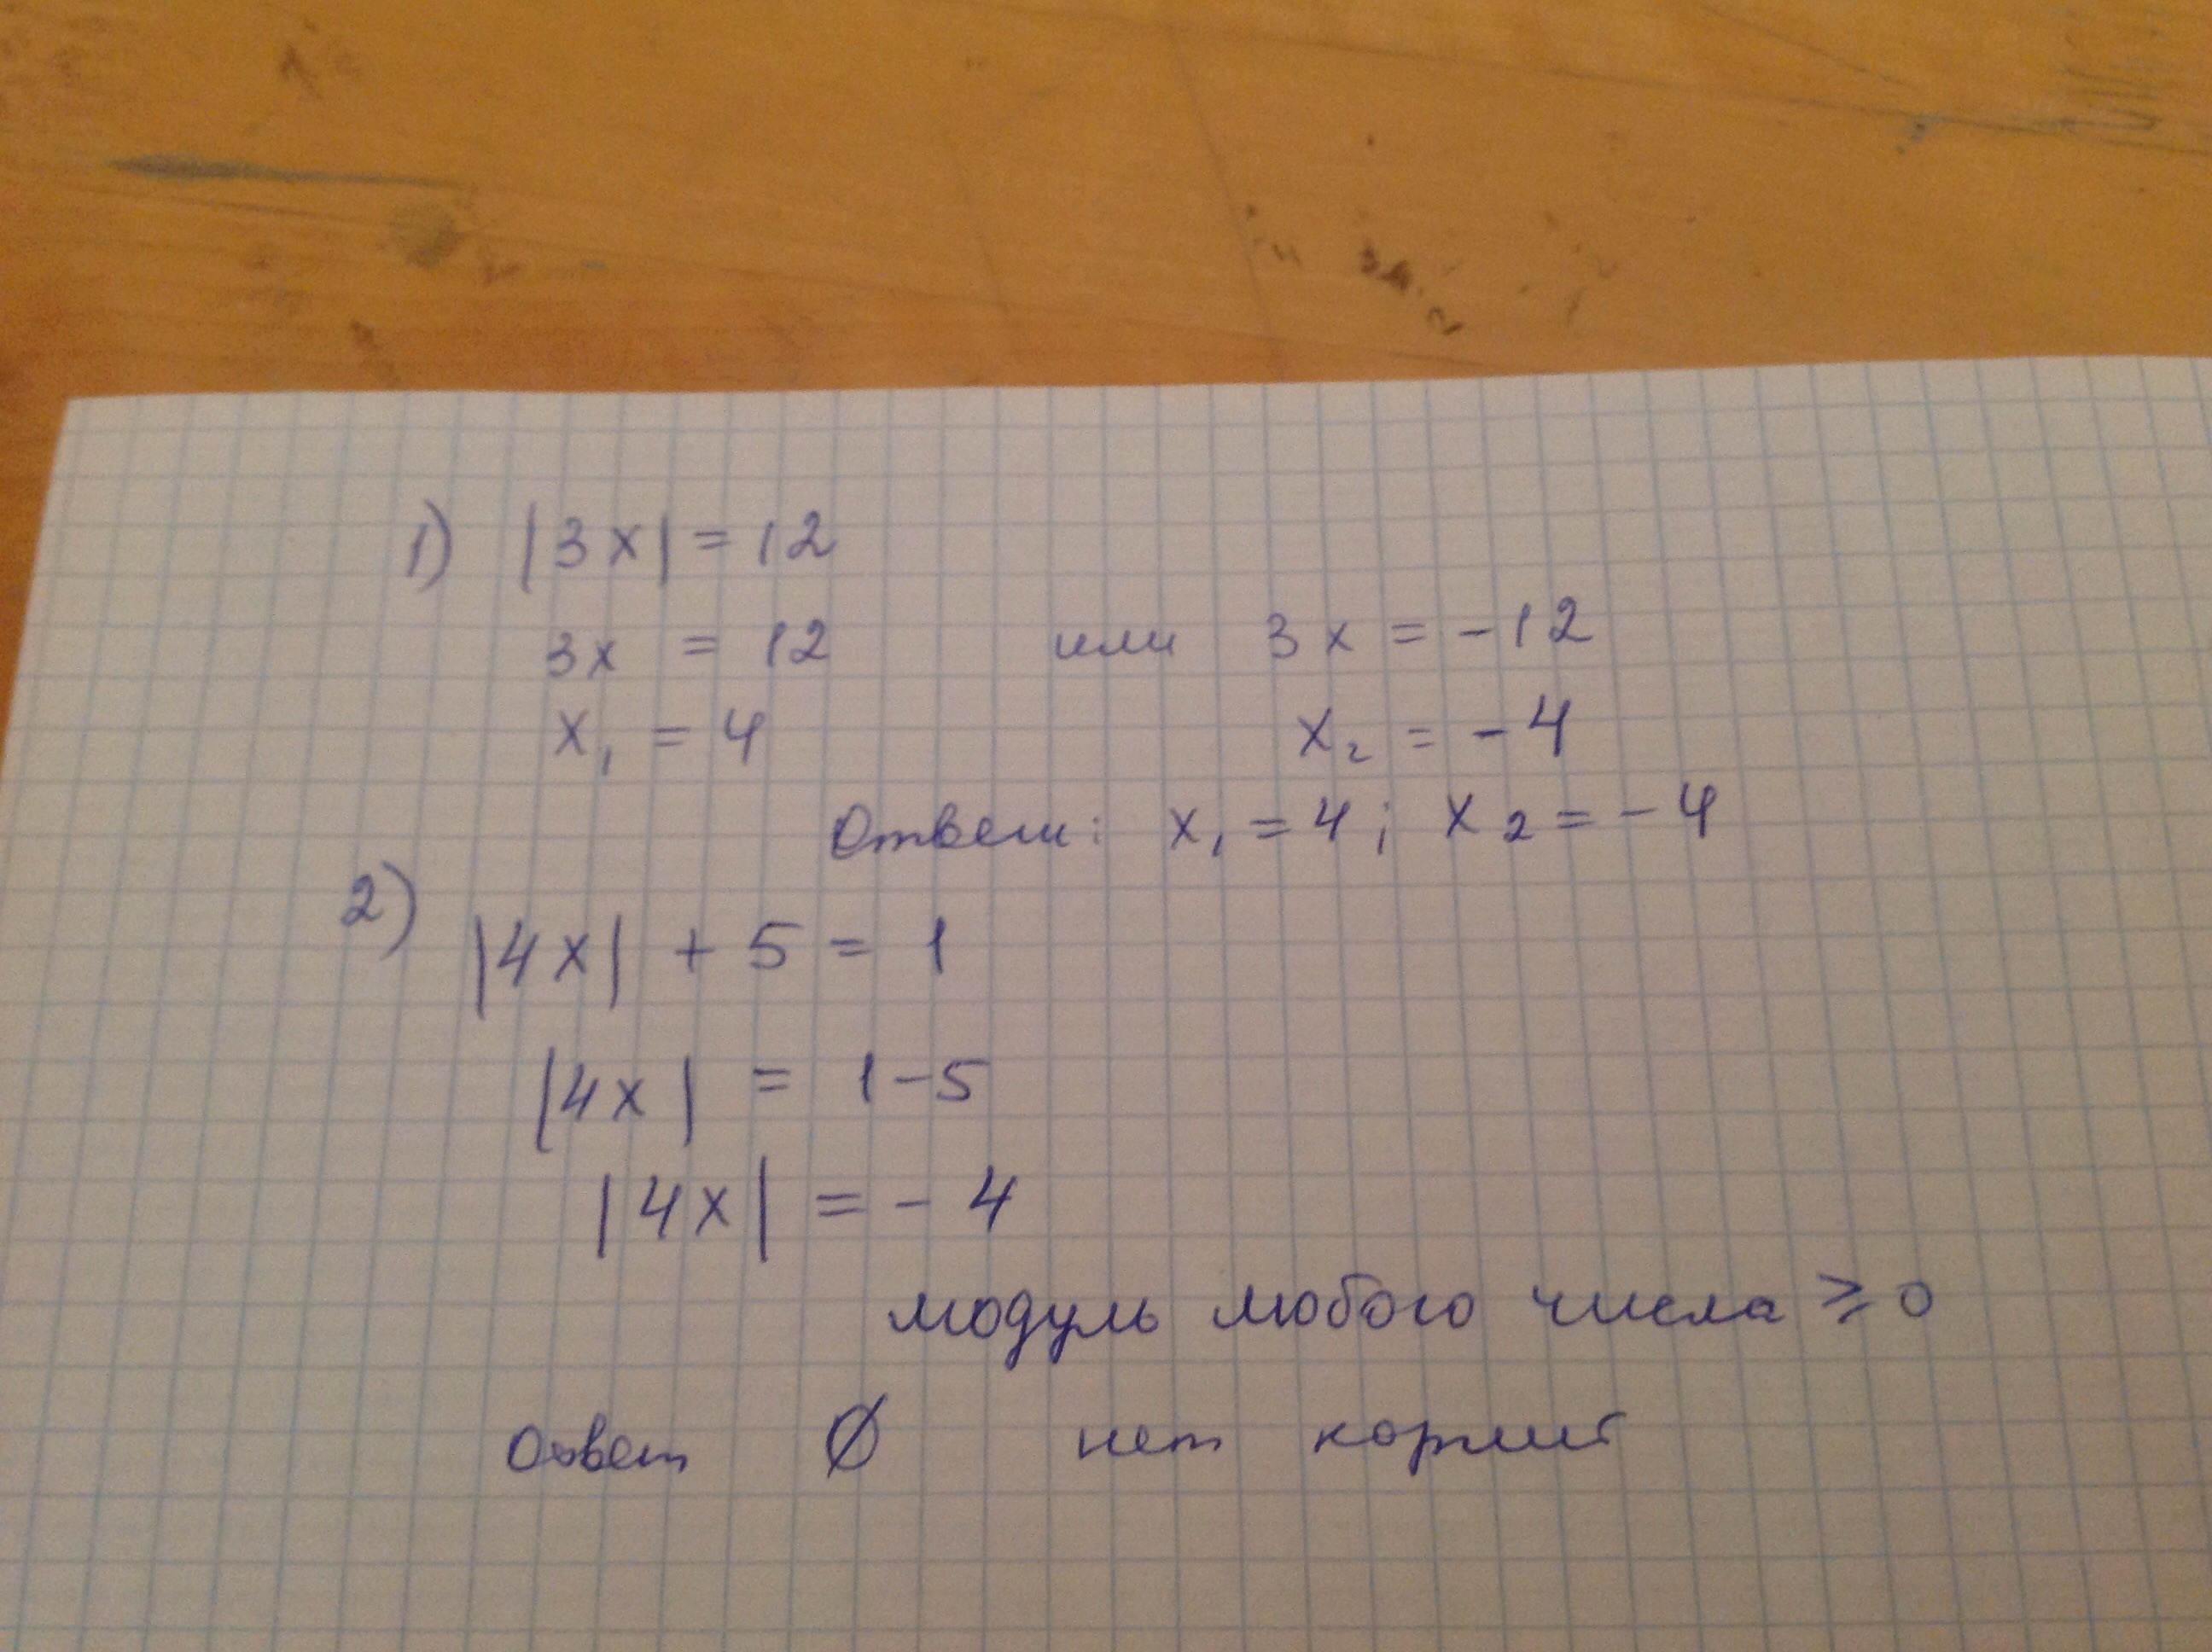 1) |3x| = 12
3x = 12 или 3x = -12
x₁ = 4 x₂ = -4
Ответ: x₁ = 4; x₂ = -4
2) |4x| + 5 = 1
|4x| = 1-5
|4x| = -4
модуль любого числа ≥ 0
Ответ Ø нет корней